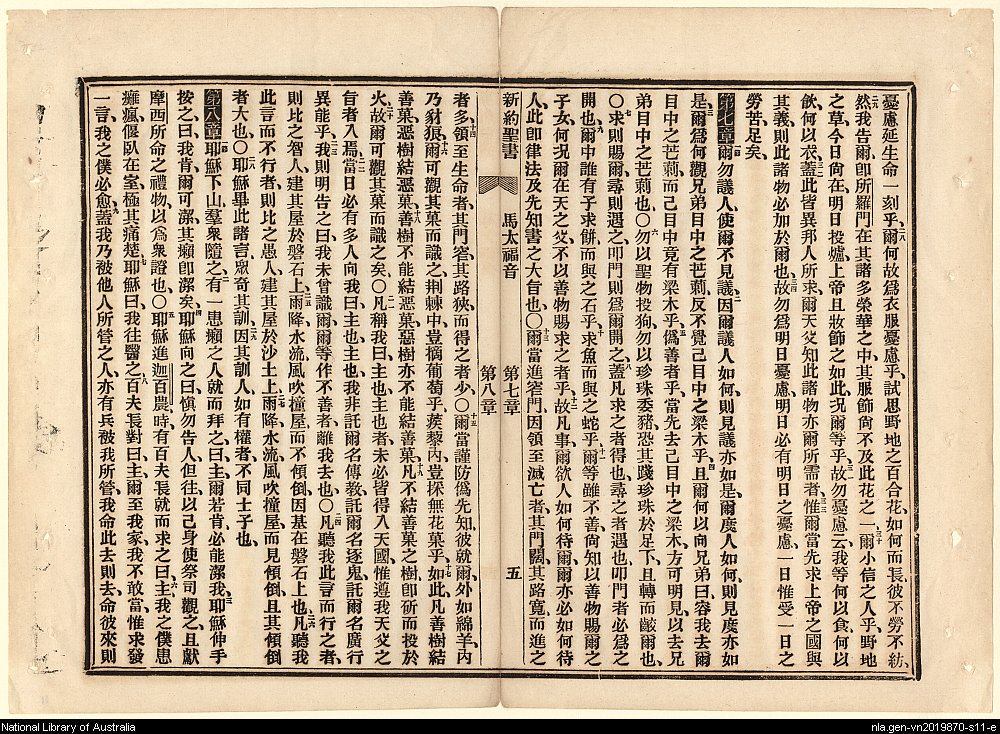 憂慮延生命一刻乎爾何故爲衣服憂慮乎試思野地之百合花如何而長彼不勞不紡
然我告爾卽所羅門在其諸多榮華之中其服飾尙不及此花之一爾小信之人乎野地
之草今日尙在明日投爐上帝且妝飾之如此况爾等乎故勿憂慮云我等何以食何以
飲何以衣蓋此皆異邦人所求爾天父知此諸物亦爾所需者惟爾當先求上帝之國與
其義則此諸物必加於爾也故勿爲明日憂慮明日必有明日之憂慮一日惟受一日之
勞苦足矣
第七章爾勿議人使爾不見議因爾議人如何則見議亦如是爾度人如何則見度亦如
是爾爲何觀兄弟目中之芒莿反不覺己目中之梁木乎且爾何以向兄弟曰容我去爾
目中之芒莿而己目中竟有梁木乎僞善者乎當先去己目中之梁木方可明見以去兄
弟目中之芒莿也〇勿以聖物投狗勿以珍珠委豬恐其踐珍珠於足下且轉而齩爾也
〇求則賜爾尋則遇之叩門則爲爾開之蓋凡求之者得也尋之者遇也叩門者必爲之
開也爾中誰有子求餅而與之石乎求魚而與之蛇乎爾等雖不善尙知以善物賜爾之
子女何况爾在天之父不以善物賜求之者乎故凡事爾欲人如何待爾爾亦必如何待
人此卽律法及先知書之大旨也〇爾當進窄門因領至滅亡者其門闊其路寬而進之
新約聖書 馬太福音 第七章 第八章 五
者多領至生命者其門窄其路狹而得之者少〇爾當謹防僞先知彼就爾外如綿羊內
乃豺狼爾可觀其菓而識之荆棘中豈摘葡萄乎蒺藜內豈採無花菓乎如此凡善樹結
善菓惡樹結惡菓善樹不能結惡菓惡樹亦不能結善菓凡不結善菓之樹卽斫而投於
火故爾可觀其菓而識之矣〇凡稱我曰主也主也者未必皆得入天國惟遵我天父之
旨者入焉當日必有多人向我曰主也主也我非託爾名傳敎託爾名逐鬼託爾名廣行
異能乎我則明告之曰我未曾識爾爾等作不善者離我去也〇凡聽我此言而行之者
則比之智人建其屋於磐石上雨降水流風吹撞屋而不傾倒因基在磐石上也凡聽我
此言而不行者則比之愚人建其屋於沙土上雨降水流風吹撞屋而見傾倒且其傾倒
者大也〇耶穌畢此諸言衆奇其訓因其訓人如有權者不同士子也
第八章耶穌下山羣衆隨之有一患癩之人就而拜之曰主爾若肯必能潔我耶穌伸手
按之曰我肯爾可潔其癩卽潔矣耶穌向之曰愼勿告人但往以己身使祭司觀之且獻
摩西所命之禮物以爲衆證也〇耶穌進迦百農時有百夫長就而求之曰主我之僕患
癱瘋偃臥在室極其痛楚耶穌曰我往醫之百夫長對曰主爾至我家我不敢當惟求發
一言我之僕必愈蓋我乃被他人所管之人亦有兵被我所管我命此去則去命彼來則
National Library of Australia
nla.gen-vn2019870-s11-e